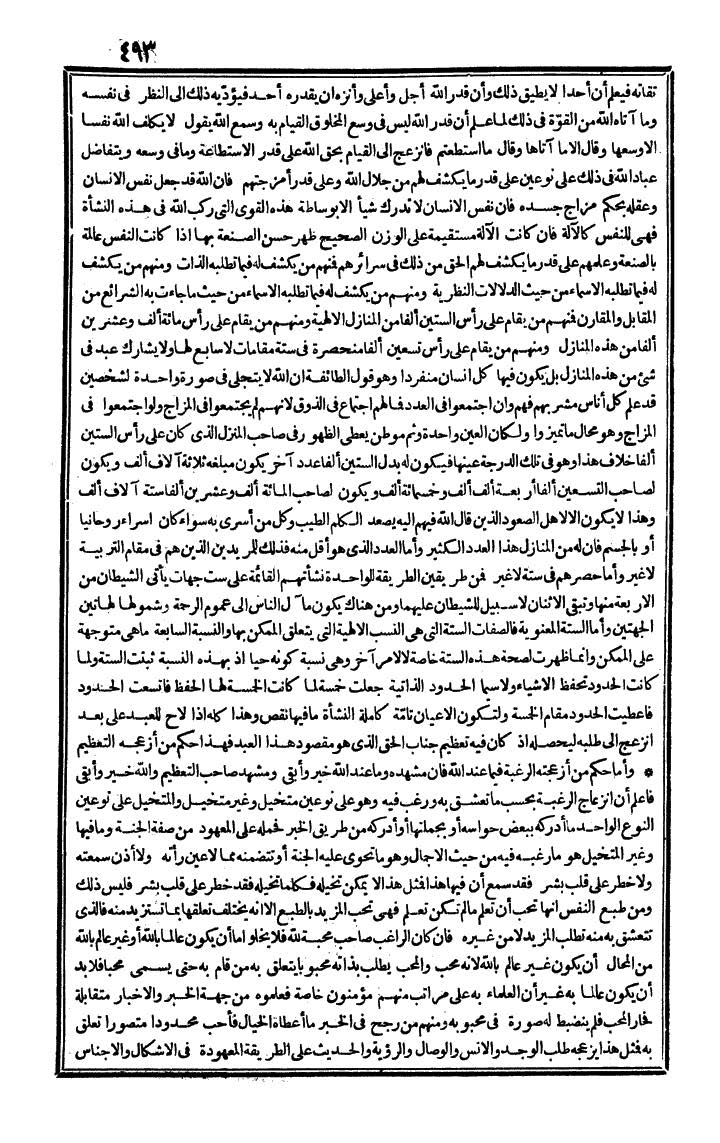 ٤٩٣
تقاته فيعلم أن أحدا لا يطيق ذلك وأن قدر الله أجل وأعلى وأنزه ان يقدره أحد فيؤديه ذلك الى النظر فى نفسه
وما آتاه الله من القوة فى ذلك لما علم أن قدر الله ليس فى وسع المخلوق القيام به وسمع الله يقول لا يكلف الله نفسا
الا وسعها وقال الا ما آتاها وقال ما استطعتم فانزعج الى القيام بحق الله على قدر الاستطاعة وما فى وسعه ويتفاضل
عباد الله فى ذلك على نوعين على قدر ما يكشف لهم من جلال الله وعلى قدر أمزجتهم فان الله قد جعل نفس الانسان
وعقله بحكم مزاج جسده فان نفس الانسان لا تدرك شيأ الا بوساطة هذه القوى التى ركب الله فى هذه النشأة
فهى للنفس كالآلة فان كانت الآلة مستقيمة على الوزن الصحيح ظهر حسن الصنعة بها اذا كانت النفس عالمة
بالصنعة وعلمهم على قدر ما يكشف لهم الحق من ذلك فى سرائرهم فمنهم من يكشف له فيما تطلبه الذات ومنهم من يكشف
له فيما تطلبه الاسماء من حيث الدلالات النظرية ومنهم من يكشف له فيما تطلبه الاسماء من حيث ما جاءت به الشرائع من
المقابل والمقارن فمنهم من يقام على رأس الستين ألفا من المنازل الالهية ومنهم من يقام على رأس مائة ألف وعشرين
ألفا من هذه المنازل ومنهم من يقام على رأس تسعين ألفا منحصرة فى ستة مقامات لا سابع لها ولا يشارك عبد فى
شئ من هذه المنازل بل يكون فيها كل انسان منفردا وهو قول الطائفة ان الله لا يتجلى فى صورة واحدة لشخصين
قد علم كل أناس مشربهم فهم وان اجتمعوا فى العدد فما لهم اجتماع فى الذوق لانهم لم يجتمعوا فى المزاج ولو اجتمعوا فى
المزاج وهو محال ما تميزوا ولكان العين واحدة وثم موطن يعطى الظهور فى صاحب المنزل الذى كان على رأس الستين
ألفا خلاف هذا وهو فى تلك الدرجة عينها فيكون له بدل الستين ألفا عدد آخر يكون مبلغه ثلاثة آلاف ألف ويكون
لصاحب التسعين ألفا أربعة ألف ألف وخمسمائة ألف ويكون لصاحب المائة ألف وعشرين ألفا ستة آلاف ألف
وهذا لا يكون الا لاهل الصعود الذين قال الله فيهم اليه يصعد الكلم الطيب وكل من أسرى به سواء كان اسراء روحانيا
أو بالجسم فان له من المنازل هذا العدد الكثير وأما العدد الذى هو أقل منه فذلك للمريدين الذين هم فى مقام التربية
لا غير وأما حصرهم فى ستة لا غير فمن طريقين الطريقة الواحدة نشأتهم القائمة على ست جهات يأتى الشيطان من
الاربعة منها وتبقى الاثنان لا سبيل للشيطان عليهما ومن هناك يكون مآل الناس الى عموم الرحمة وشمولها لهاتين
الجهتين وأما الستة المعنوية فالصفات الستة التى هى النسب الالهية التى يتعلق الممكن بها والنسبة السابعة ما هى متوجهة
على الممكن وانما ظهرت لصحة هذه الستة خاصة لا لامر آخر وهى نسبة كونه حيا اذ بهذه النسبة ثبتت الستة ولما
كانت الحدود تحفظ الاشياء ولا سيما الحدود الذاتية جعلت خمسة لما كانت الخمسة لها الحفظ فاتسعت الحدود
فاعطيت الحدود مقام الخمسة ولتكون الاعيان تامة كاملة النشأة ما فيها نقص وهذا كله اذا لاح للعبد على بعد
انزعج الى طلبه ليحصله اذ كان فيه تعظيم جناب الحق الذى هو مقصود هذا العبد فهذا حكم من أزعجه التعظيم
* وأما حكم من أزعجته الرغبة فيما عند الله فان مشهده وما عند الله خير وأبقى ومشهد صاحب التعظيم والله خير وأبقى
فاعلم أن انزعاج الرغبة بحسب ما تعشق به ورغب فيه وهو على نوعين متخيل وغير متخيل والمتخيل على نوعين
النوع الواحد ما أدركه ببعض حواسه أو بجملتها أو أدركه من طريق الخبر فحمله على المعهود من صفة الجنة وما فيها
وغير المتخيل هو ما رغبه فيه من حيث الاجمال وهو ما تحوى عليه الجنة أو تتضمنه مما لا عين رأته ولا أذن سمعته
ولا خطر على قلب بشر فقد سمع أن فيها هذا فمثل هذا لا يمكن تخيله فكل ما تخيله فقد خطر على قلب بشر فليس ذلك
ومن طبع النفس انها تحب أن تعلم ما لم تكن تعلم فهى تحب المزيد بالطبع الا انه يختلف تعلقها بما تستزيد منه فالذى
تتعشق به منه تطلب المزيد لا من غيره فان كان الراغب صاحب محبة لله فلا يخلو اما أن يكون عالما بالله أو غير عالم بالله
من المحال أن يكون غير عالم بالله لانه محب والمحب يطلب بذاته محبوبا يتعلق به من قام به حتى يسمى محبا فلا بد
أن يكون عالما به غير أن العلماء به على مراتب منهم مؤمنون خاصة فعلموه من جهة الخبر والاخبار متقابلة
فحار المحب فلم ينضبط له صورة فى محبوبه ومنهم من رجح فى الخبر ما أعطاه الخيال فأحب محدودا متصورا تعلق
به فمثل هذا يزعجه طلب الوجد والانس والوصال والرؤية والحديث على الطريقة المعهودة فى الاشكال والاجناس